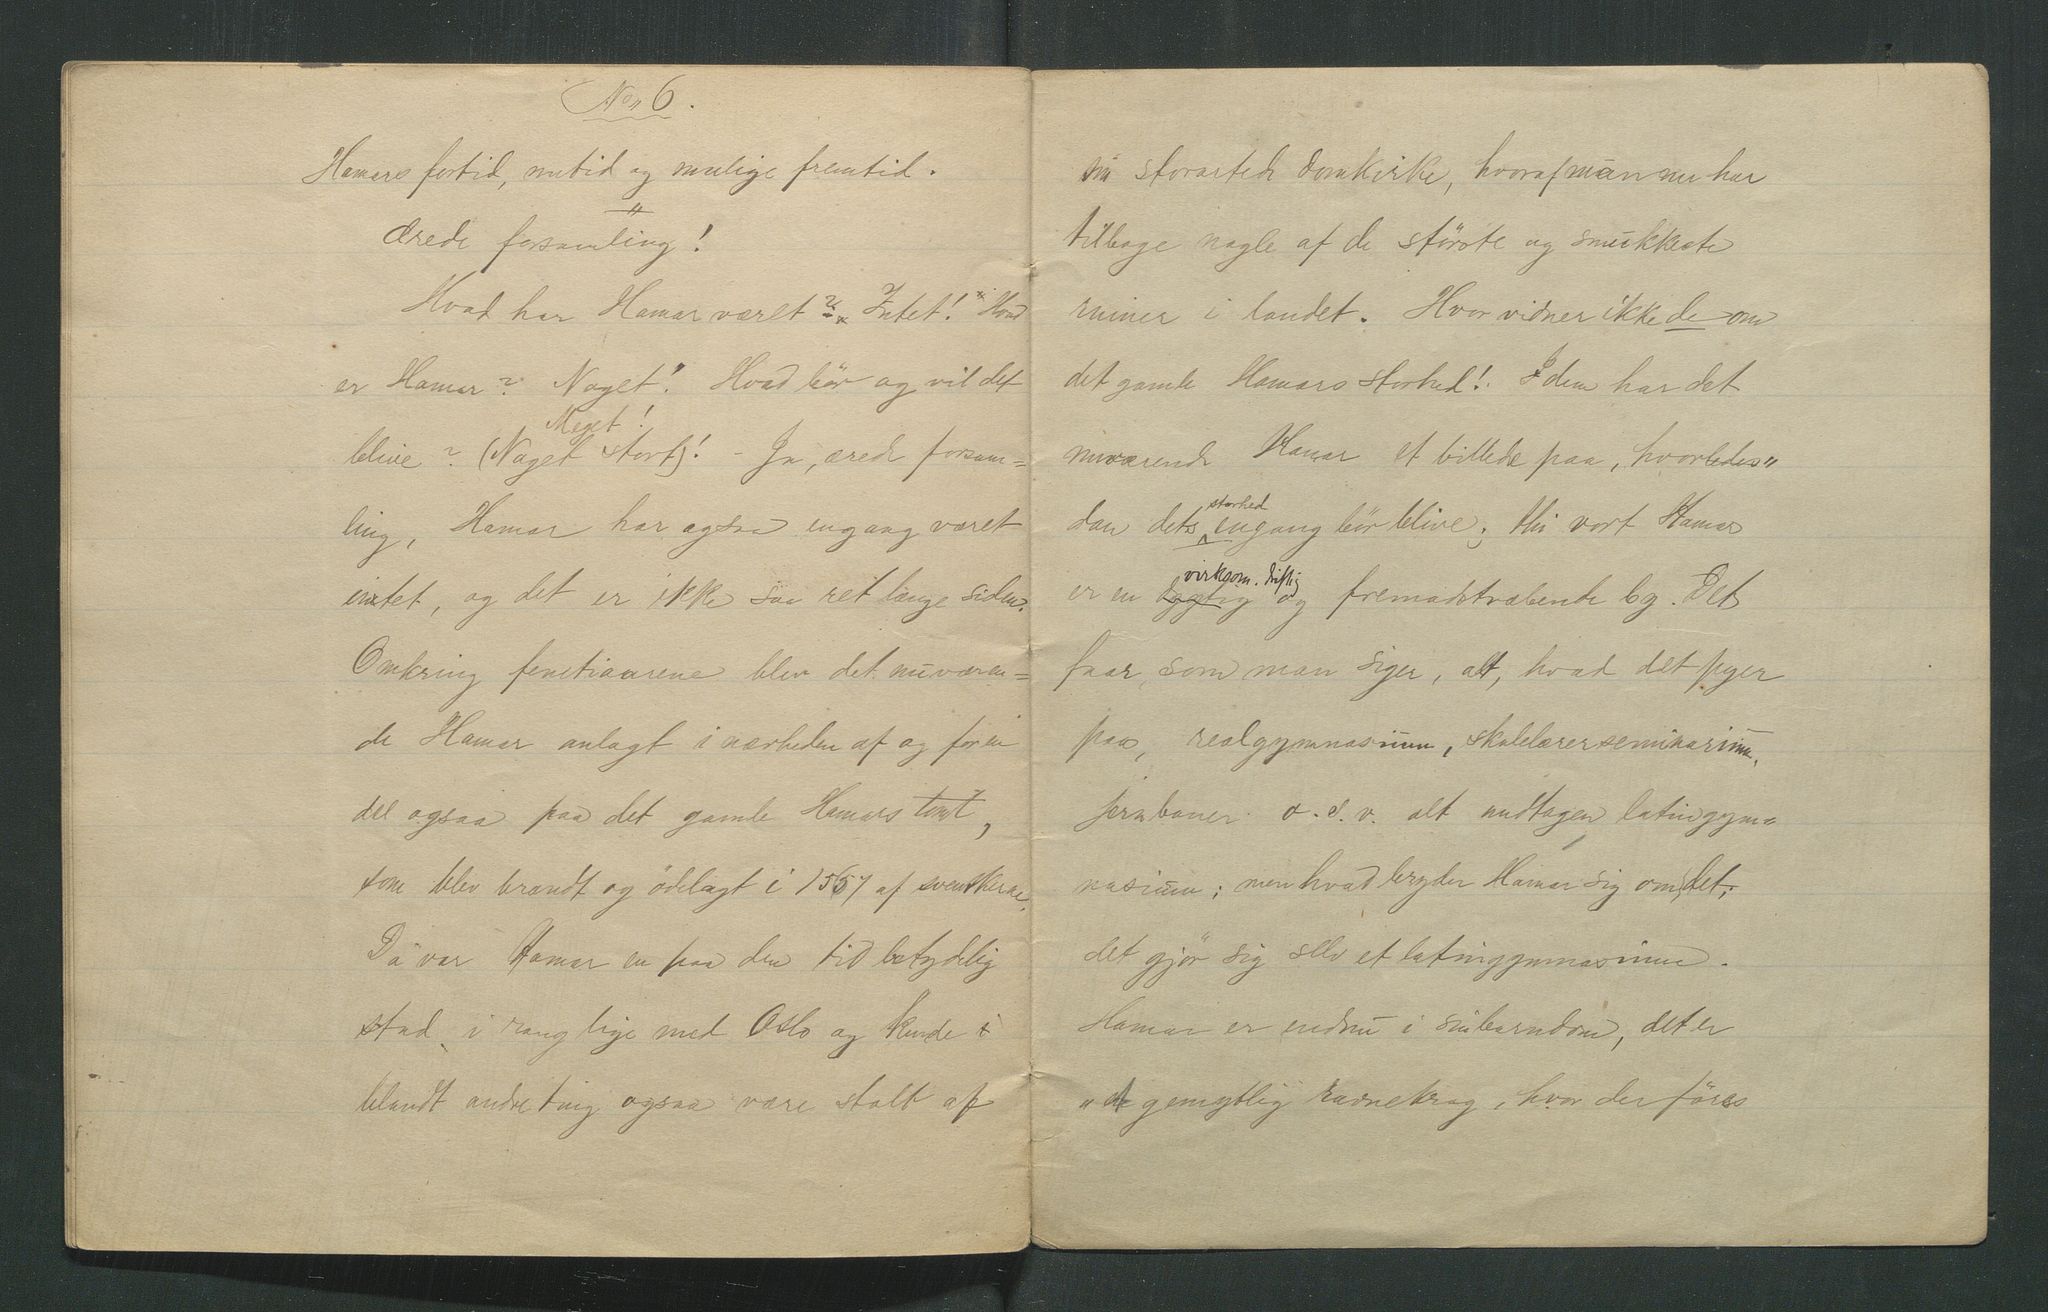 No 6.
Hamars fortid, nutid og mulige fremtid.
Ærede forsamling!
Hvad har Hamar været? "Intet!" Hvad
er Hamar? "Noget!" Hvad bør og vil det
Meget!
blive? (Noget stort)! - Ja, ærede forsam=
ling, Hamar har ogsaa engang været
intet, og det er ikke saa ret længe siden.
Omkring femtiaarene blev det nuværen=
de Hamar anlagt i nærheden af og for en
del ogsaa paa det gamle Hamars tomt,
som blev brændt og ödelagt i 1567 af svenskerne.
Da var Hamar en paa den tid betydelig
stad, i rang lige med Oslo og kunde i
blandt andre ting ogsaa være stolt af
sin storartede domkirke, hvoraf man nu har
tilbage nogle af de störste og smukkeste
ruiner i landet. Hvor vidner ikke de om
det gamle Hamars storhed! I dem har det
nuværende Hamar et billede paa, hvorledes"
storhed
dan dets engang bör blive; thi vort Hamar
virksom. driftig
er en og fremadstræbende by. Det
faar, som man siger, alt, hvad det peger
paa, realgymnasium, skolelærerseminarium,
jernbaner o.s.v. alt undtagen latingym=
nasium; men hvad bryder Hamar sig om det;
det gjör sig selv et latingymnasium.
Hamar er endnu i sin barndom, det er
et gemytlig ravnekrog, hvor der föres